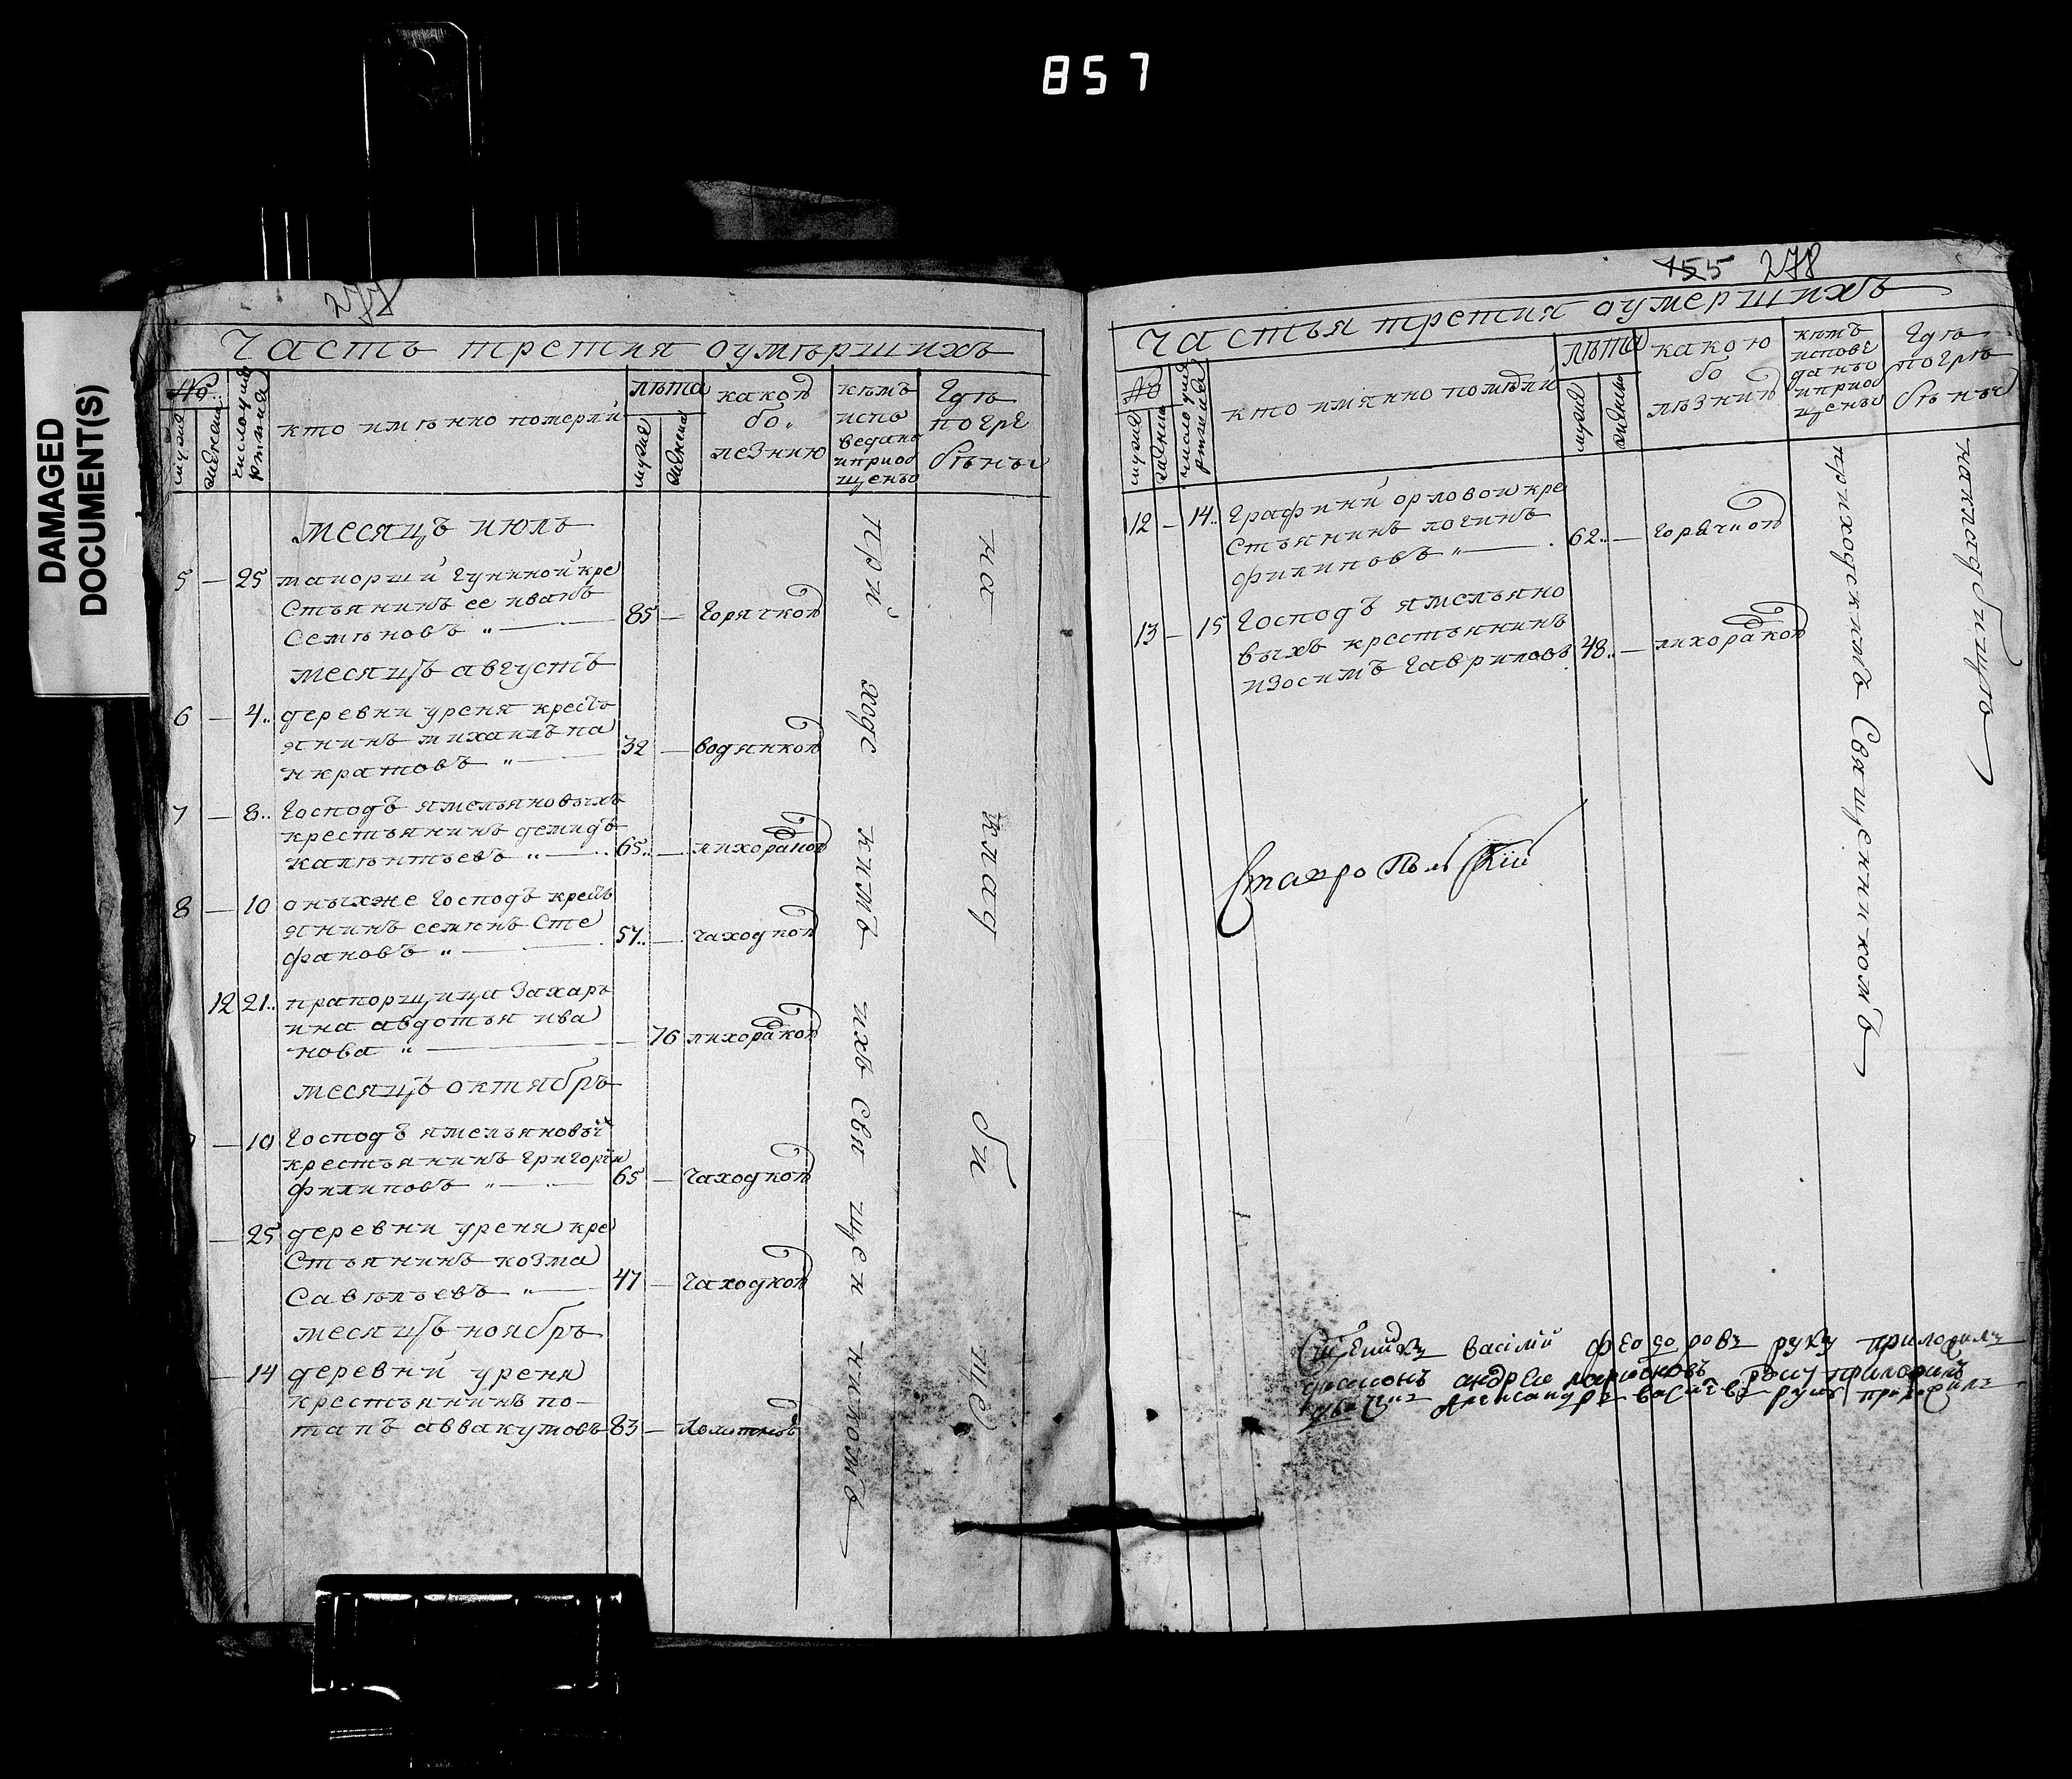 857
DAMAGED
DOCUMENT(S)
Часть третия оумършихъ
№
мужия
женска
число умертвия
кто имѣнно помърли
лѣта
мужия
женска
какой
бо„
лезнию
кѣмъ
испо
веданы
и приоб
щены
Где
погре
бѣны
месяцъ июль
5 — 25 маиорши Гуниной кре
Стьянинъ ее иванъ
Семѣновъ „ — 85 — Горячкой
месяцъ августъ
6 — 4.. деревни уреня кресть
янинъ михаилъ па
нкратовъ „ — 32 — водянкой
7 — 8.. Господъ ямельяновыхъ
крестьянинъ демидъ
калѣнтьевъ „ — 65.. — лихорадкой
8 — 10 оныхже Господъ кресть
янинъ семѣнъ Сте
фановъ „ — 57.. — чахоткой
12 21.. прапорщица Захарь
ина авдотья ива
нова „ — 76 лихорадкой
месяцъ октябрь
— 10 Господъ ямельяновых
крестьянинъ Григорїи
филиповъ „ — 65 — чаходкой
— 25 деревни уреня кре
Стьянинъ козма
Савѣльевъ „ — 47 — чаходкой
месяцъ ноябрь
— 14 деревни уреня
крестьянинъ по-
тапъ аввакумовъ 83 —
при ходс кимъ ихъ свя щен никомъ
на клад би ще
155 278
Частья третия оумершихъ
№
мужия
женска
число умертвия
кто имянно помѣрли
лѣта
мужия
женско
какою
бо
лѣзнию
кѣмъ
испове
даны
и приоб
щены
Где
погре
бѣны
12 — 14.. Графини орловои кре
Стьянинъ логинъ
филиповъ „ — 62.. — Горячной
13 — 15 Господъ ямельяно
выхъ крестьянинъ
изосимъ Гавриловъ 48.. — лихорадкой
приходскимъ Священникомъ
накладбищѣ
Василий феодоровъ руку приложилъ
андреи ларионовъ руку приложилъ
Александръ васильевъ руку приложилъ